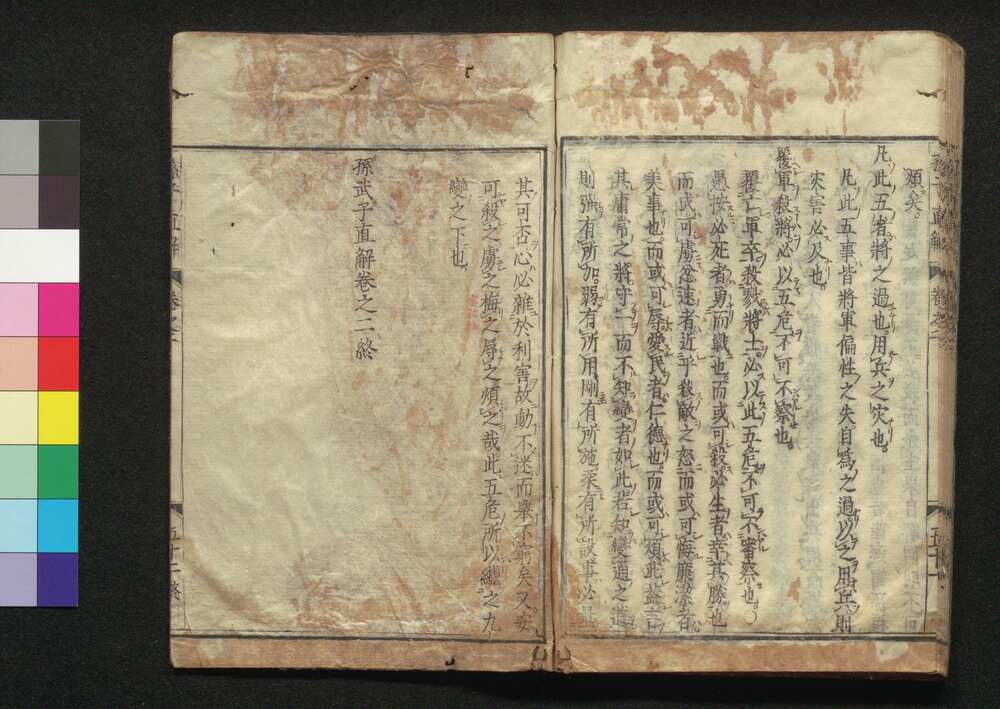 煩矣
凡此五者將之過也用兵之災也
凡此五事皆將軍偏性之失自為之過以之用兵則
災害必及也
覆軍殺將必以五危不可不察也
覆亡軍卒殺戮將士必以此五危不可不審察也○
愚按必死者勇而戰也而或可殺必生者幸其勝也
而或可虜忿速者近乎殺敵之怒而或可侮廉潔者
美事也而或可辱愛民者仁德也而或可煩此蓋言
其庸常之將守一而不知變者如此若知變通之道
則強有所加弱有所用剛有所施柔有所設事必量
其可否心必雜於利害故動不迷而舉不窮矣又安
可殺之虜之侮之辱之煩之哉此五危所以繼之九
變之下也
孫武子直解卷之二終